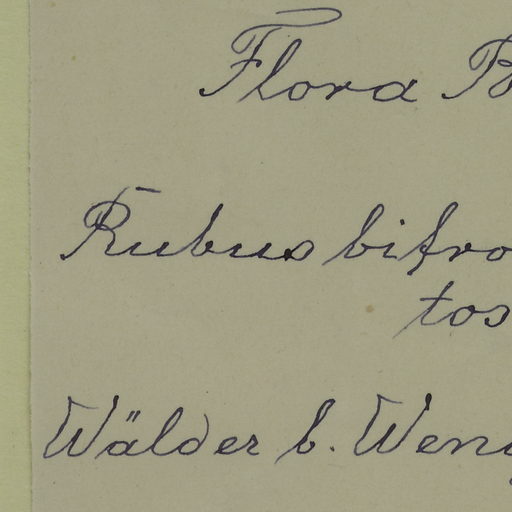 Flora B
Rubus bifro
tos
Wälder b. Weng